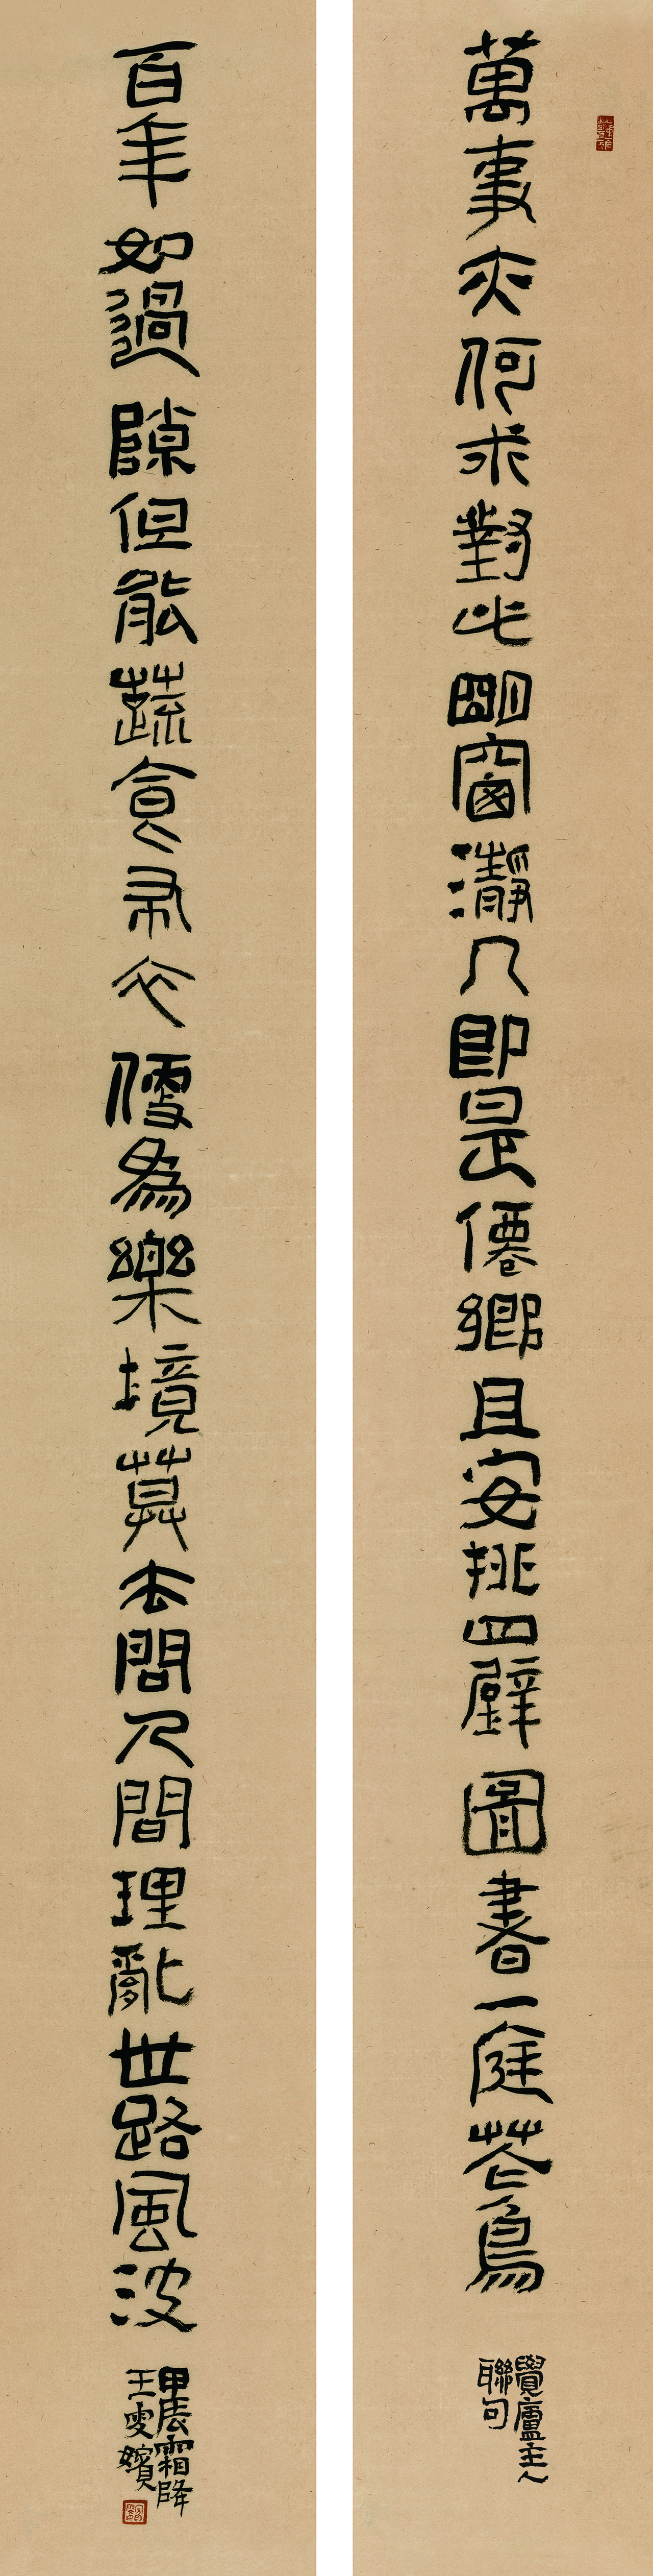 萬事亦何求對此朙窗瀞几即是僊鄉且安排四壁圖書一庭花鳥
覺廬主人
聯句
百年如過隙但能蔬食布衣便為樂境莫去問人間理亂世路風波
甲辰霜降
王雯嬪